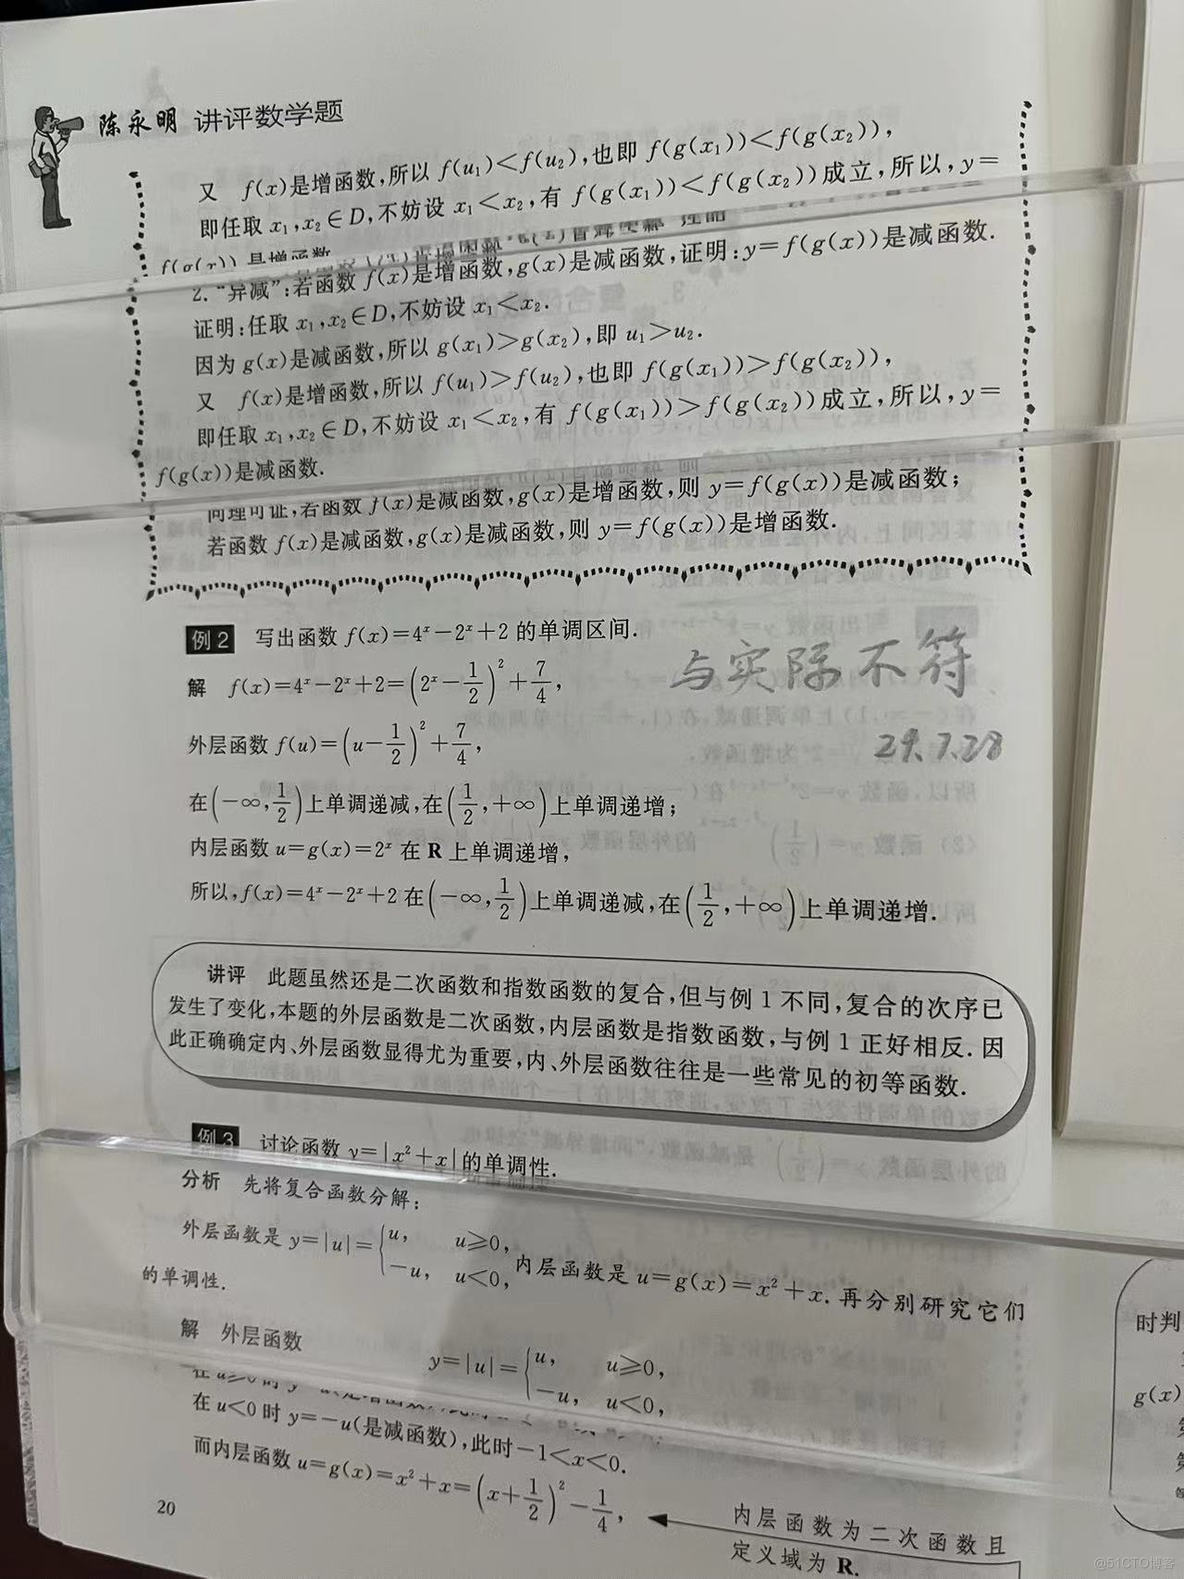 陈永明 讲评数学题
又 f(x)是增函数,所以 f(u₁)<f(u₂),也即 f(g(x₁))<f(g(x₂)),
即任取 x₁,x₂∈D,不妨设 x₁<x₂,有 f(g(x₁))<f(g(x₂))成立,所以,y=
f(g(x))是增函数
2.“异减”:若函数 f(x)是增函数,g(x)是减函数,证明:y=f(g(x))是减函数.
证明:任取 x₁,x₂∈D,不妨设 x₁<x₂.
因为 g(x)是减函数,所以 g(x₁)>g(x₂),即 u₁>u₂.
又 f(x)是增函数,所以 f(u₁)>f(u₂),也即 f(g(x₁))>f(g(x₂)),
即任取 x₁,x₂∈D,不妨设 x₁<x₂,有 f(g(x₁))>f(g(x₂))成立,所以,y=
f(g(x))是减函数.
同理可证,若函数 f(x)是减函数,g(x)是增函数,则 y=f(g(x))是减函数;
若函数 f(x)是减函数,g(x)是减函数,则 y=f(g(x))是增函数.
例2 写出函数 f(x)=4ˣ-2ˣ+2 的单调区间.
与实际不符
解 f(x)=4ˣ-2ˣ+2=(2ˣ-1/2)²+7/4,
外层函数 f(u)=(u-1/2)²+7/4,
24.7.28
在(-∞,1/2)上单调递减,在(1/2,+∞)上单调递增;
内层函数 u=g(x)=2ˣ 在 R 上单调递增,
所以,f(x)=4ˣ-2ˣ+2 在(-∞,1/2)上单调递减,在(1/2,+∞)上单调递增.
讲评 此题虽然还是二次函数和指数函数的复合,但与例 1 不同,复合的次序已
发生了变化,本题的外层函数是二次函数,内层函数是指数函数,与例 1 正好相反. 因
此正确确定内、外层函数显得尤为重要,内、外层函数往往是一些常见的初等函数.
例3 讨论函数 y=|x²+x|的单调性.
分析 先将复合函数分解:
外层函数是 y=|u|={u, u≥0, -u, u<0, 内层函数是 u=g(x)=x²+x. 再分别研究它们
的单调性.
解 外层函数
y=|u|={u, u≥0, -u, u<0,
在 u<0 时 y=-u(是减函数),此时-1<x<0.
而内层函数 u=g(x)=x²+x=(x+1/2)²-1/4,
内层函数为二次函数且
定义域为 R.
20
时判
g(x)
@51CTO博客